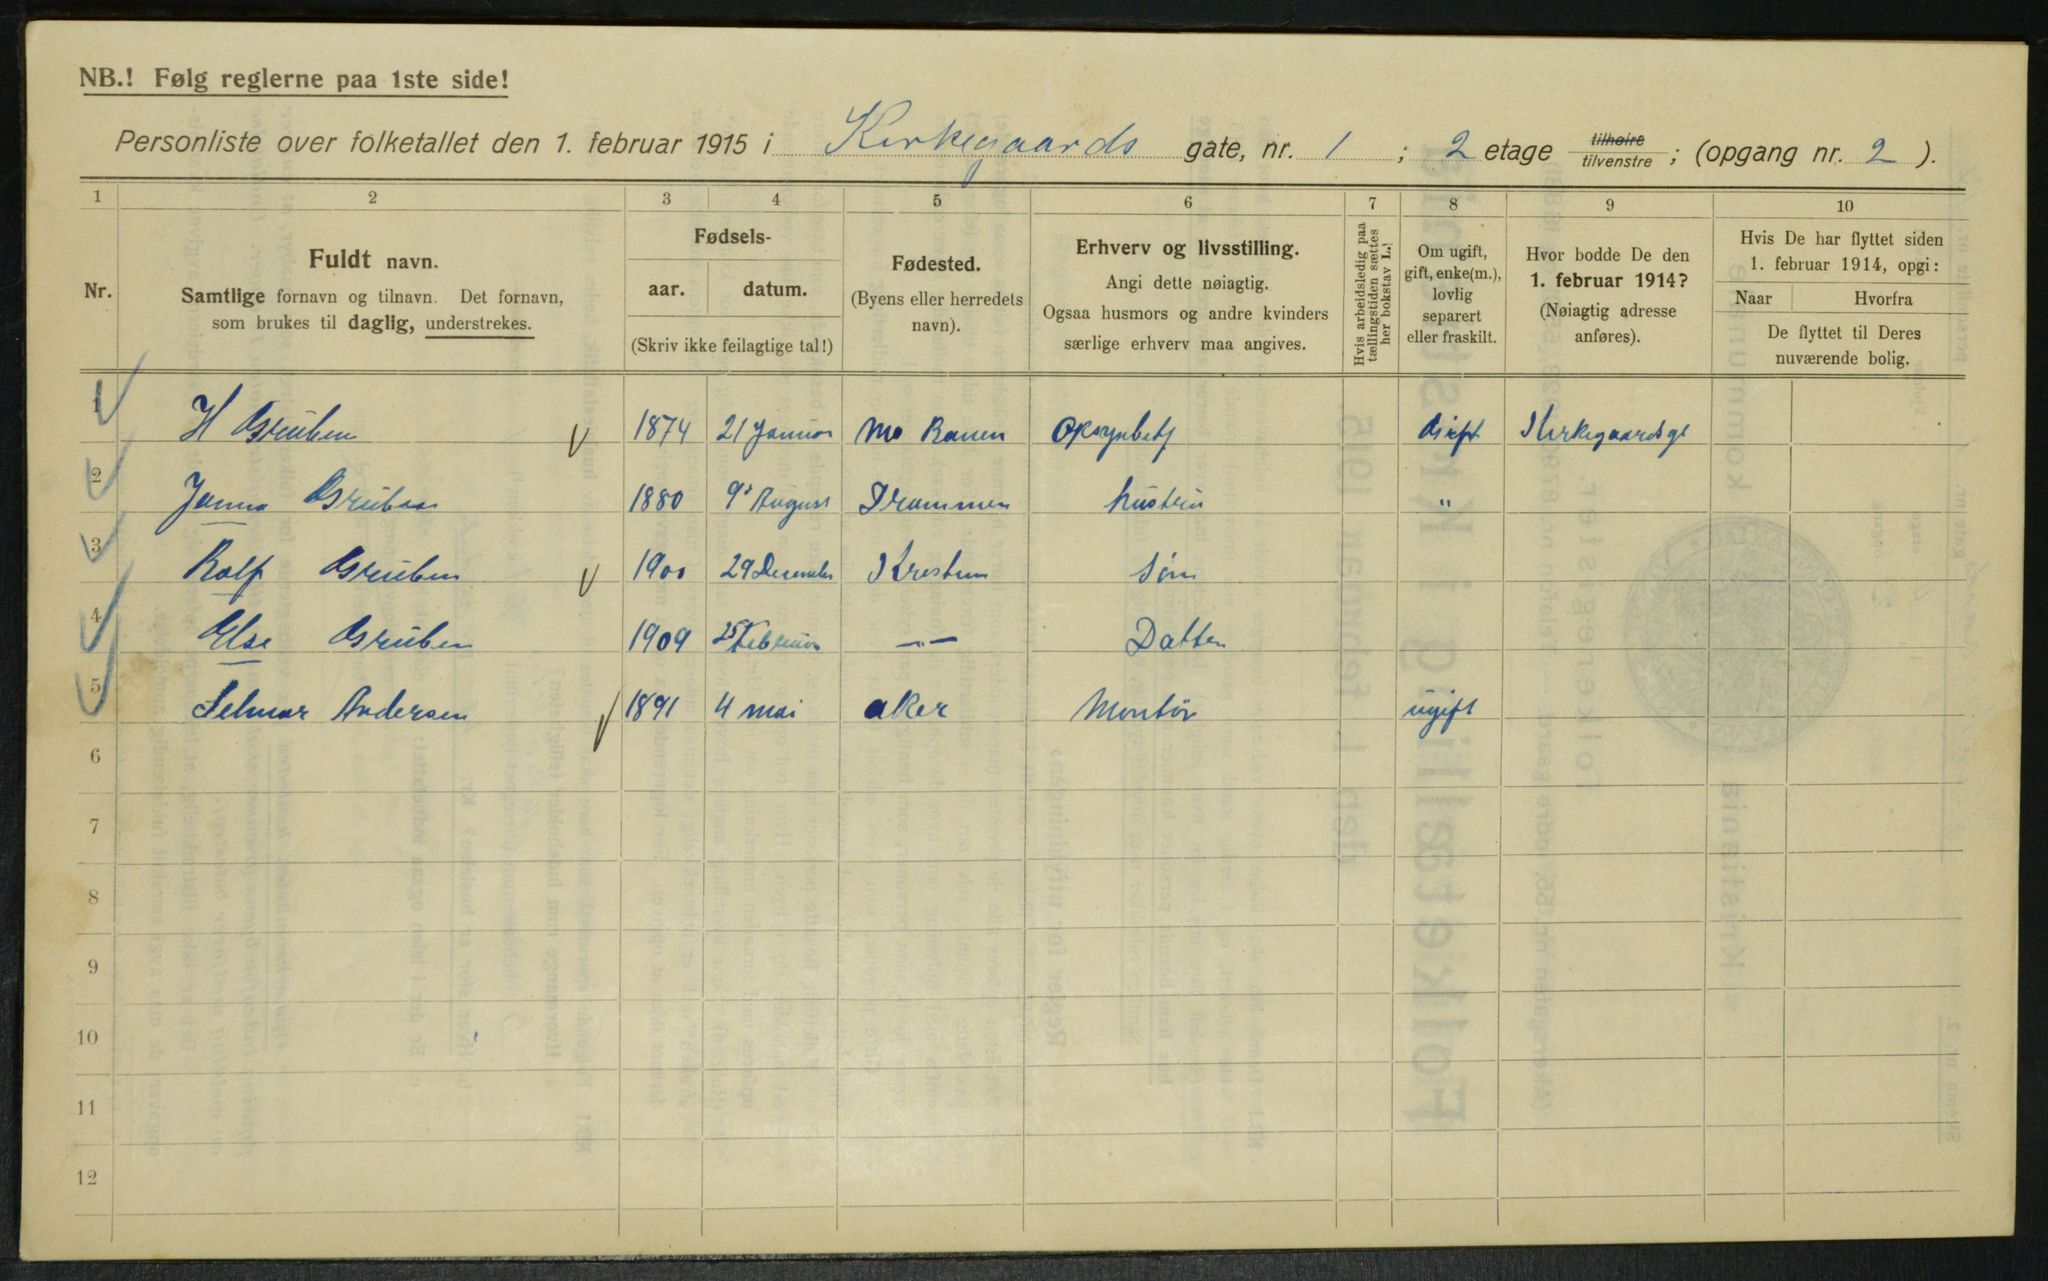 NB.! Følg reglerne paa 1ste side!
Personliste over folketallet den 1. februar 1915 i Kirkegaards gate, nr. 1 ; 2 etage tilhøire tilvenstre ; (opgang nr. 2 ).
1 2 3 4 5 6 7 8 9 10
Nr.
Fuldt navn.
Samtlige fornavn og tilnavn. Det fornavn,
som brukes til daglig, understrekes.
Fødsels-
aar. datum.
(Skriv ikke feilagtige tal!)
Fødested.
(Byens eller herredets
navn).
Erhverv og livsstilling.
Angi dette nøiagtig.
Ogsaa husmors og andre kvinders
særlige erhverv maa angives.
Hvis arbeidsledig paa
tællingstiden sættes
her bokstav L.!
Om ugift,
gift, enke(m.),
lovlig
separert
eller fraskilt.
Hvor bodde De den
1. februar 1914?
(Nøiagtig adresse
anføres).
Hvis De har flyttet siden
1. februar 1914, opgi:
Naar Hvorfra
De flyttet til Deres
nuværende bolig.
1 H Gruben 1874 21 Januar Mo Ranen Opsynbetj Gift Kirkegaardsgt
2 Janna Gruben 1880 9 August Drammen hustru "
3 Rolf Gruben 1900 29 December Søn
4 Else Gruben 1909 25 Februar —"— Datter
5 Selmar Andersen 1891 4 mai aker Montør ugift
6
7
8
9
10
11
12